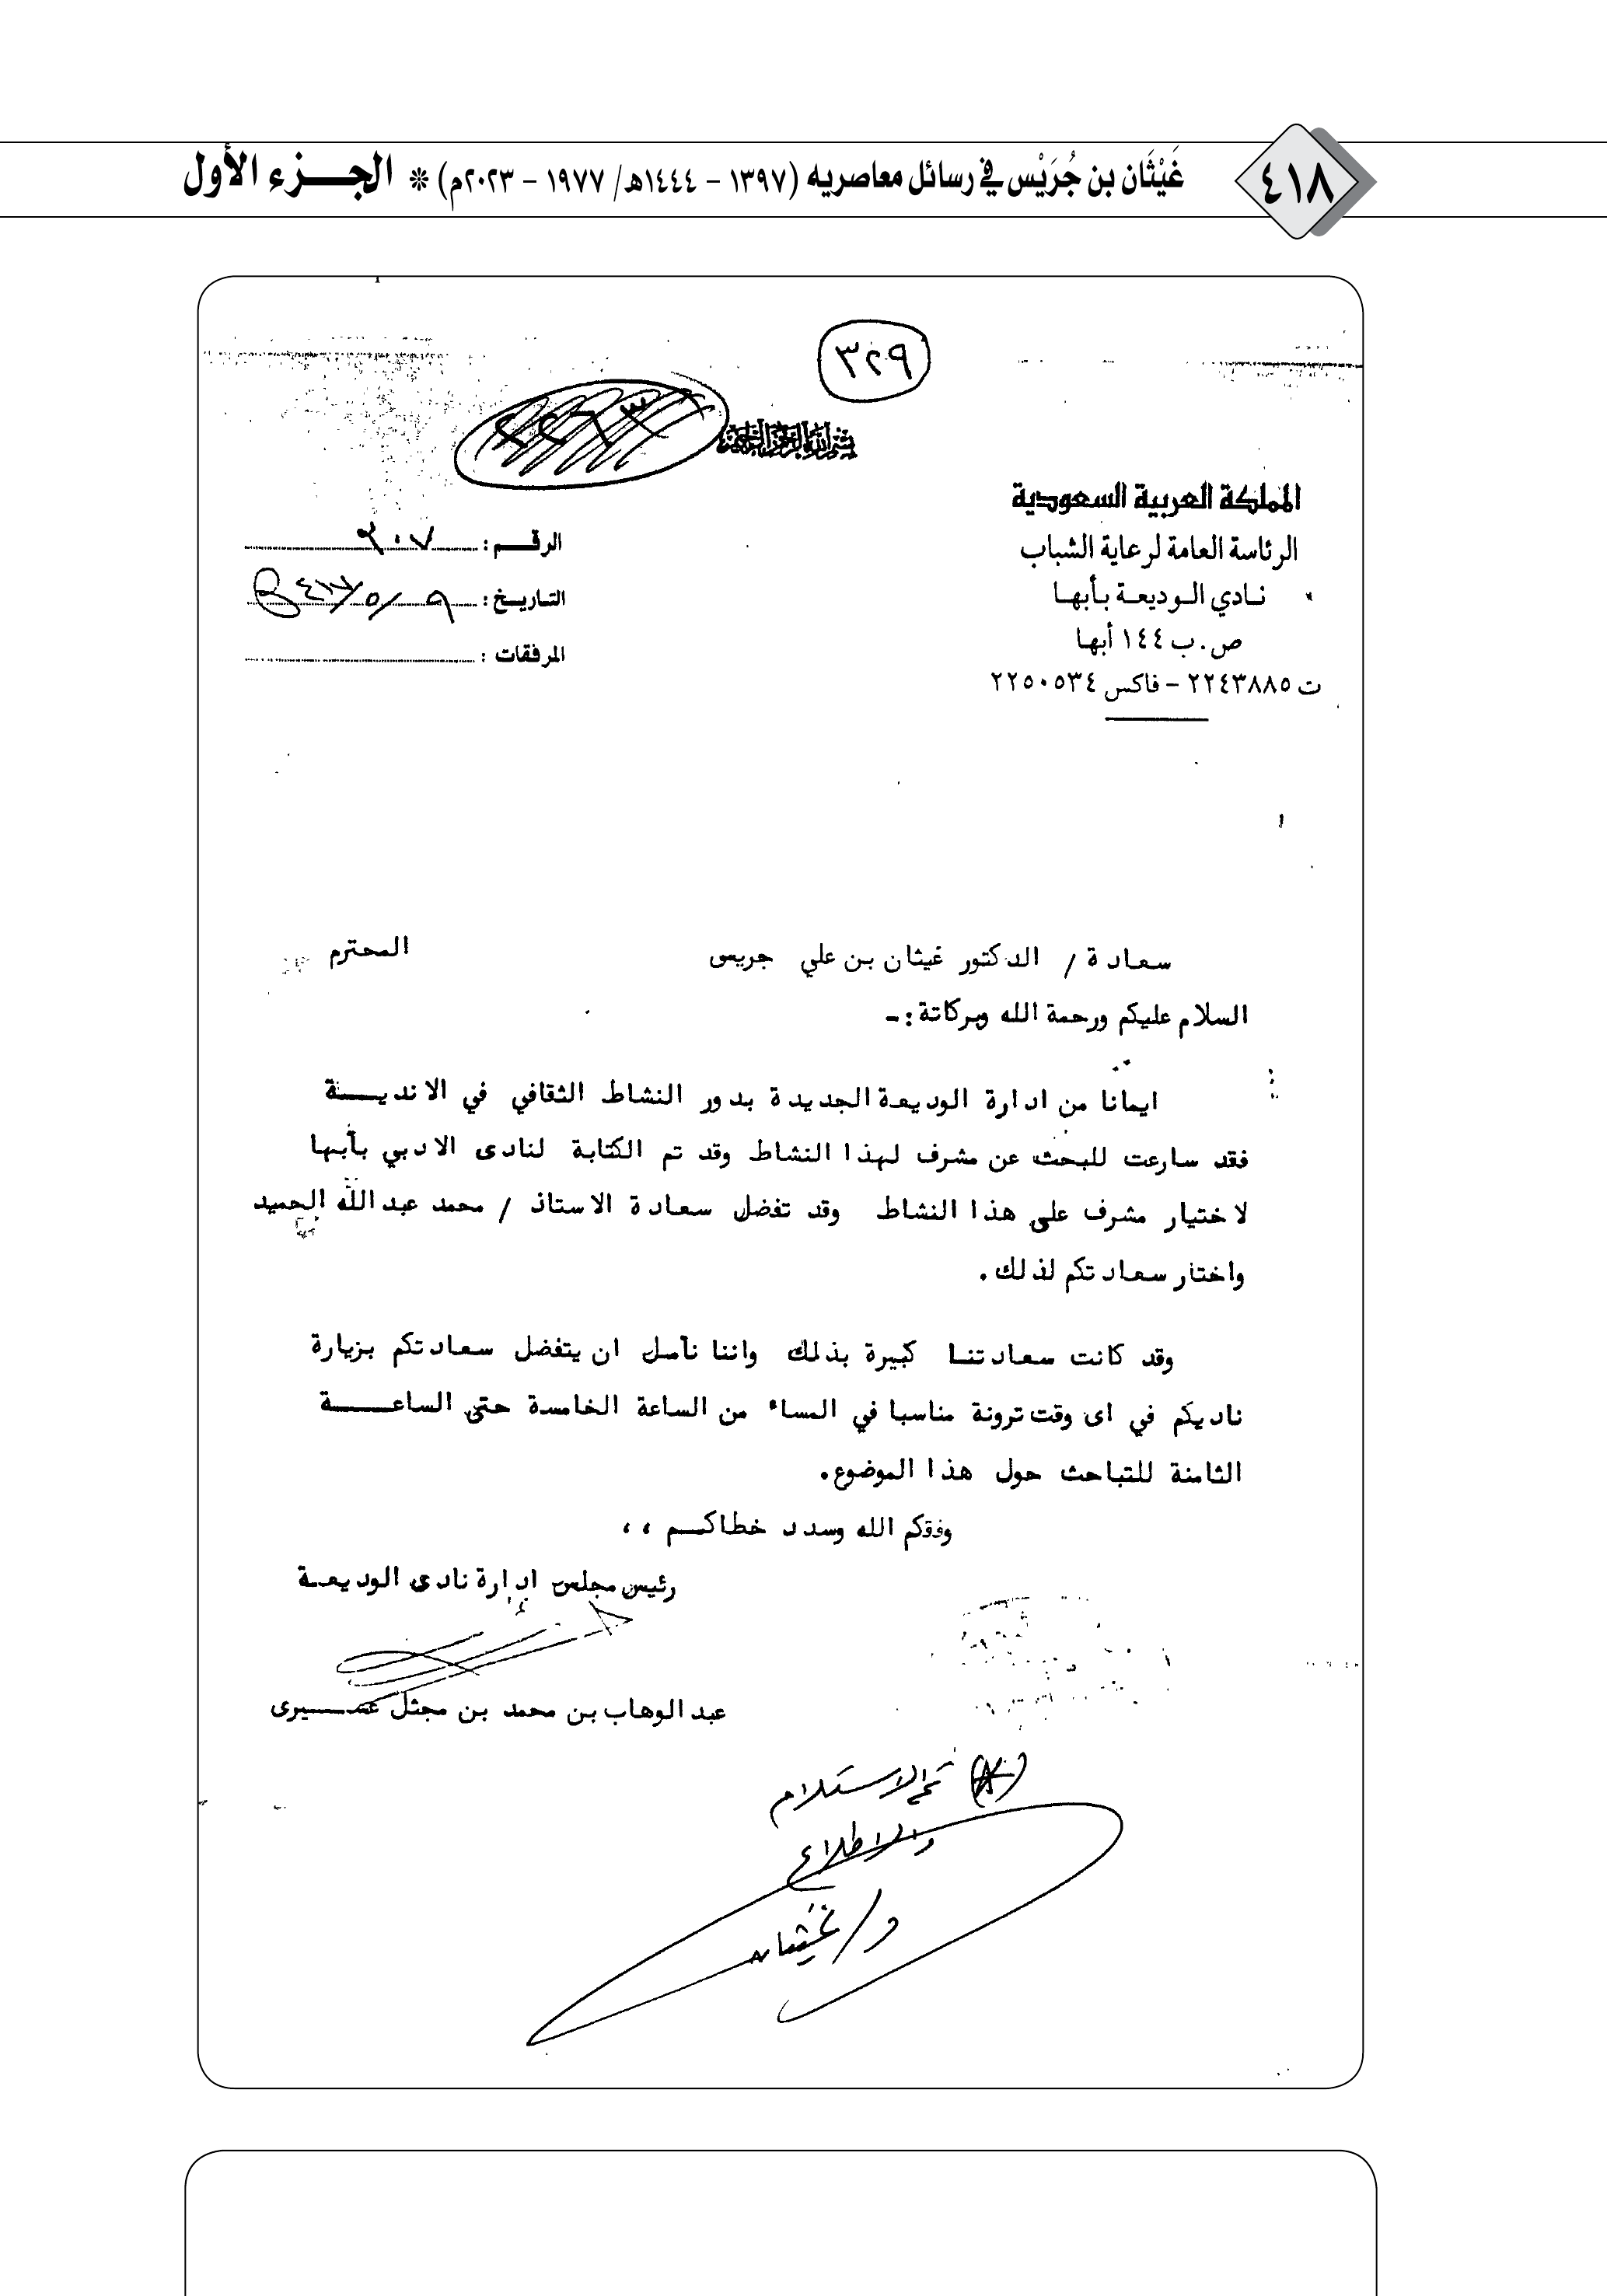 ٤١٨
غَيْثَان بن جُرَيْس في رسائل معاصريه (١٣٩٧ - ١٤٤٤هـ/ ١٩٧٧ - ٢٠٢٣م) * الجـــزء الأول
٣٢٩
بسم الله الرحمن الرحيم
المملكة العربية السعودية
الرئاسة العامة لرعاية الشباب
نـادي الـوديعـة بـأبهـا
ص . ب ١٤٤ أبها
ت ٢٢٤٣٨٨٥ – فاكس ٢٢٥٠٥٣٤
الرقـــم :
التـاريــخ : ٩ / ٥ / ٤١٧
المرفقات :
سعادة / الدكتور غيثان بن علي جريس المحترم
السلام عليكم ورحمة الله وبركاتة :ـ
ايمانا من ادارة الوديعة الجديدة بدور النشاط الثقافي في الانديـــة
فقد سارعت للبحث عن مشرف لهذا النشاط وقد تم الكتابة لنادى الادبي بأبها
لاختيار مشرف على هذا النشاط وقد تفضل سعادة الاستاذ / محمد عبدالله الحميد
واختار سعادتكم لذلك .
وقد كانت سعادتنا كبيرة بذلك واننا نأمل ان يتفضل سعادتكم بزيارة
ناديكم في اى وقت ترونة مناسبا في المساء من الساعة الخامسة حتى الساعـــــة
الثامنة للتباحث حول هذا الموضوع .
وفقكم الله وسدد خطاكـــم ،،
رئيس مجلس إدارة نادى الوديعـة
عبدالوهاب بن محمد بن مجثل عســـيرى
تم الاستلام
والاطلاع
د/ غيثان